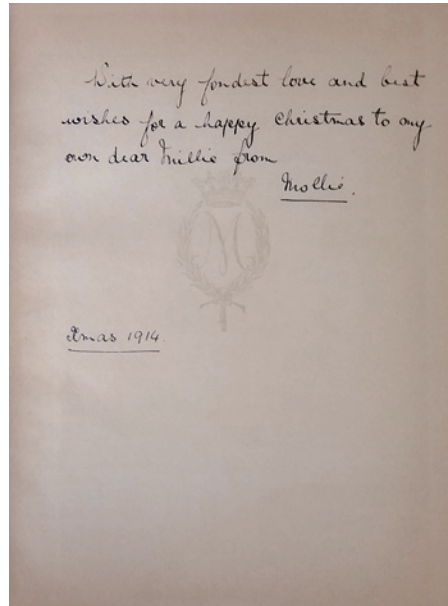 With very fondest love and best
wishes for a happy Christmas to my
own dear Millie from
Mollie.
Xmas 1914